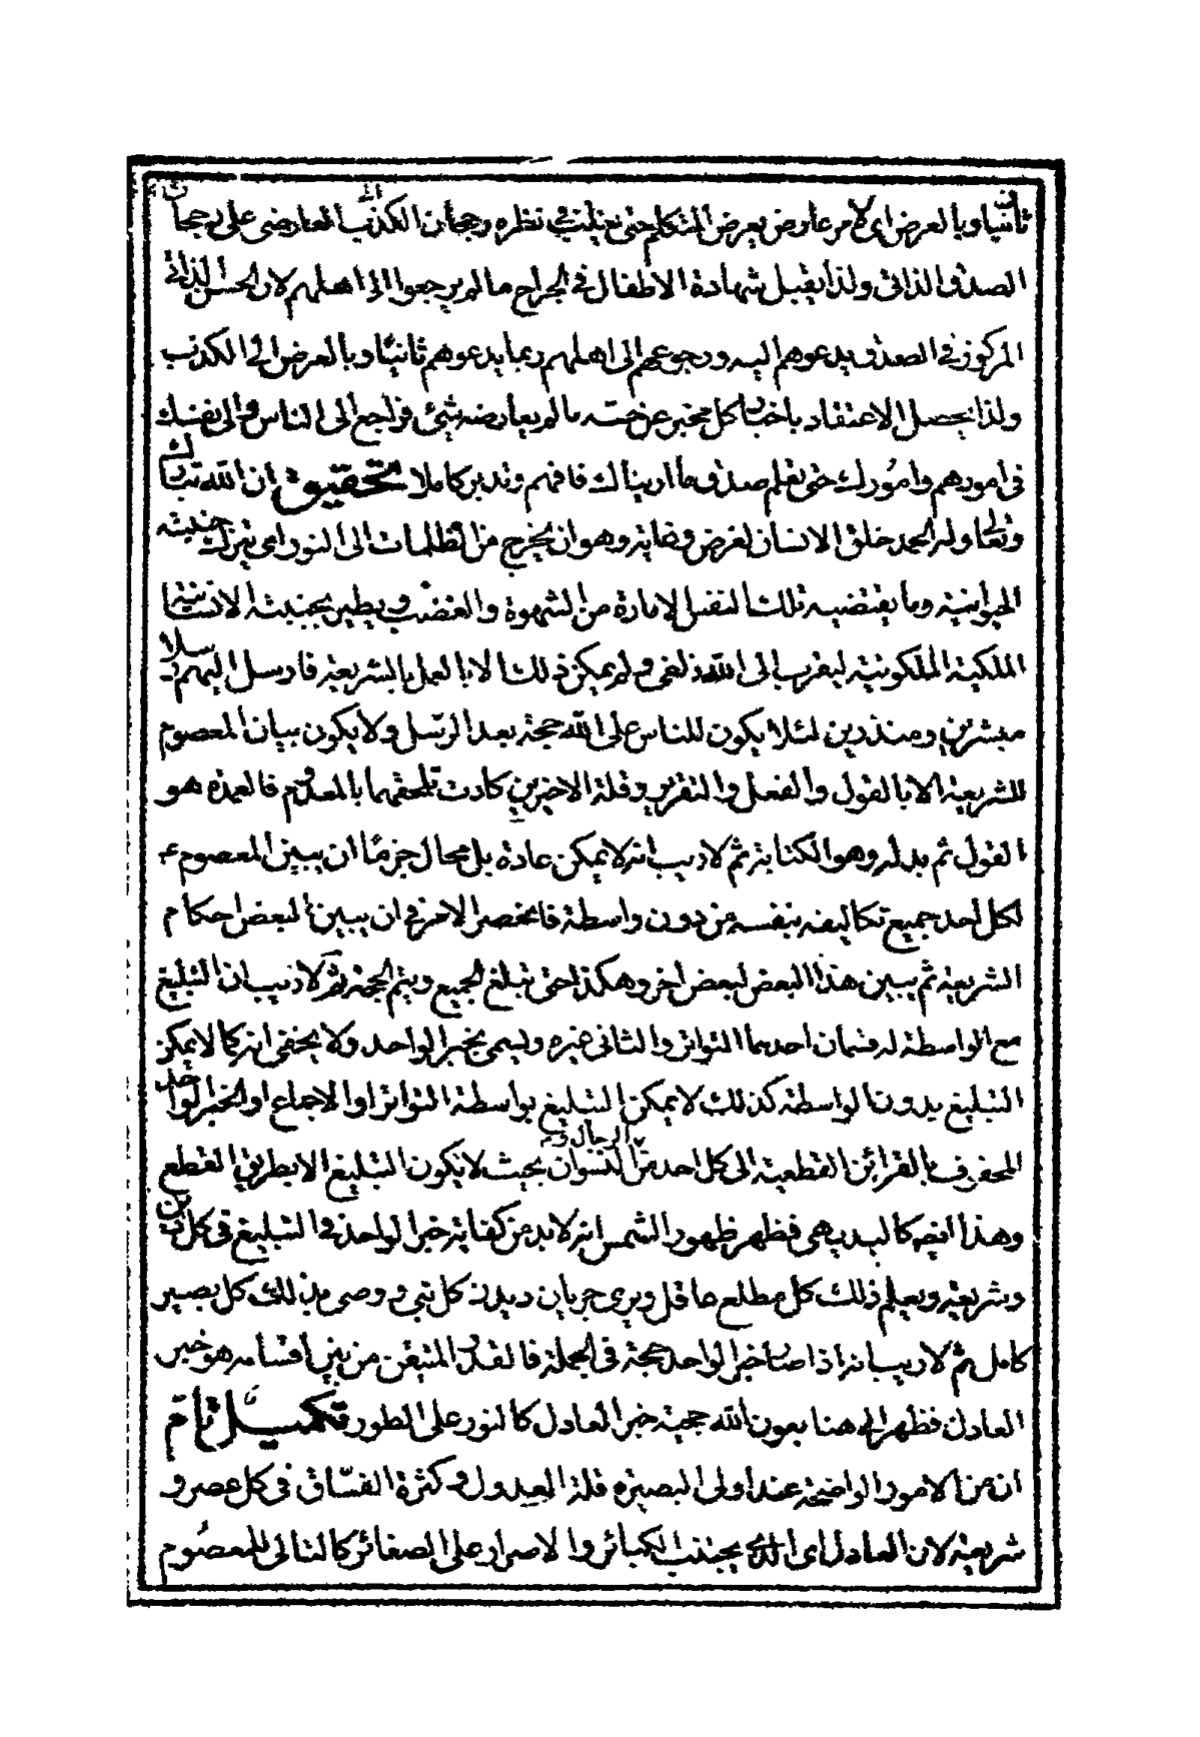 ثانيا وبالعرض اى لامر عارض يعرض المتكلم حتى يغلب فى نظره رجحان الكذب العارضى على رجحان
الصدق الذاتى ولذا يقبل شهادة الاطفال فى الجراح ما لم يرجعوا الى اهلهم لان الحسن الذاتى
المركوز فى الصدق يدعوهم اليه ورجوعهم الى اهلهم ربما يدعوهم ثانيا وبالعرض الى الكذب
ولذا يحصل الاعتقاد باخبار كل مخبر عن حسه ما لم يعارضه شيئ فراجع الى الناس والى نفسك
فى امورهم وامورك حتى تعلم صدق ما اريناك فافهم وتدبر كاملا تحقيق ان الله تبارك
وتعالى وله الحمد خلق الانسان لغرض وغاية وهو ان يخرج من الظلمات الى النور اى يترك جنبيته
الحيوانية وما يقتضيه تلك النفس الامارة من الشهوة والغضب ويطير بجنبته الانسانية
الملكية الملكوتية ليقرب الى الله زلفى ولم يمكن ذلك الا بالعمل بالشريعة فارسل اليهم رسلا
مبشرين ومنذرين لئلا يكون للناس على الله حجة بعد الرسل ولا يكون بيان المعصوم
للشريعة الا بالقول والفعل والتقرير وقلة الاخيرين كادت تلحقهما بالمعدوم فالعمدة هو
القول ثم بدله وهو الكتابة ثم لا ريب انه لا يمكن عادة بل محال جزما ان يبين المعصوم ع
لكل احد جميع تكاليفه بنفسه من دون واسطة فانحصر الامر فى ان يبين لبعض احكام
الشريعة ثم يبين هذا البعض لبعض اخر وهكذا حتى تبلغ الجميع ويتم الحجة ثم لا ريب ان التبليغ
مع الواسطة له قسمان احدهما التواتر والثانى غيره ويسمى بخبر الواحد ولا يخفى انه كما لا يمكن
التبليغ بدون الواسطة كذلك لا يمكن التبليغ بواسطة التواتر او الاجماع او الخبر الواحد
المحفوف بالقرائن القطعية الى كل احد من الرجال و النسوان بحيث لا يكون التبليغ الا بطريق القطع
وهذا ايضه كالبديهى فظهر ظهور الشمس انه لا بد من كفاية خبر الواحد فى التبليغ فى كل دين
وشريعة ويعلم ذلك كل مطلع عاقل ويرى جريان ديدن كل نبى ووصى بذلك كل بصير
كامل ثم لا ريب انه اذا صار خبر الواحد حجة فى الجملة فالقدر المتيقن من بين اقسامه هو خبر
العادل فظهر الى هنا بعون الله حجية خبر العادل كالنور على الطور تكميل تام
ان من الامور الواضحة عند اولى البصيرة قلة العدول وكثرة الفساق فى كل عصر و
شريعة لان العادل اى الذى يجتنب الكبائر والاصرار على الصغائر كالتالى للمعصوم